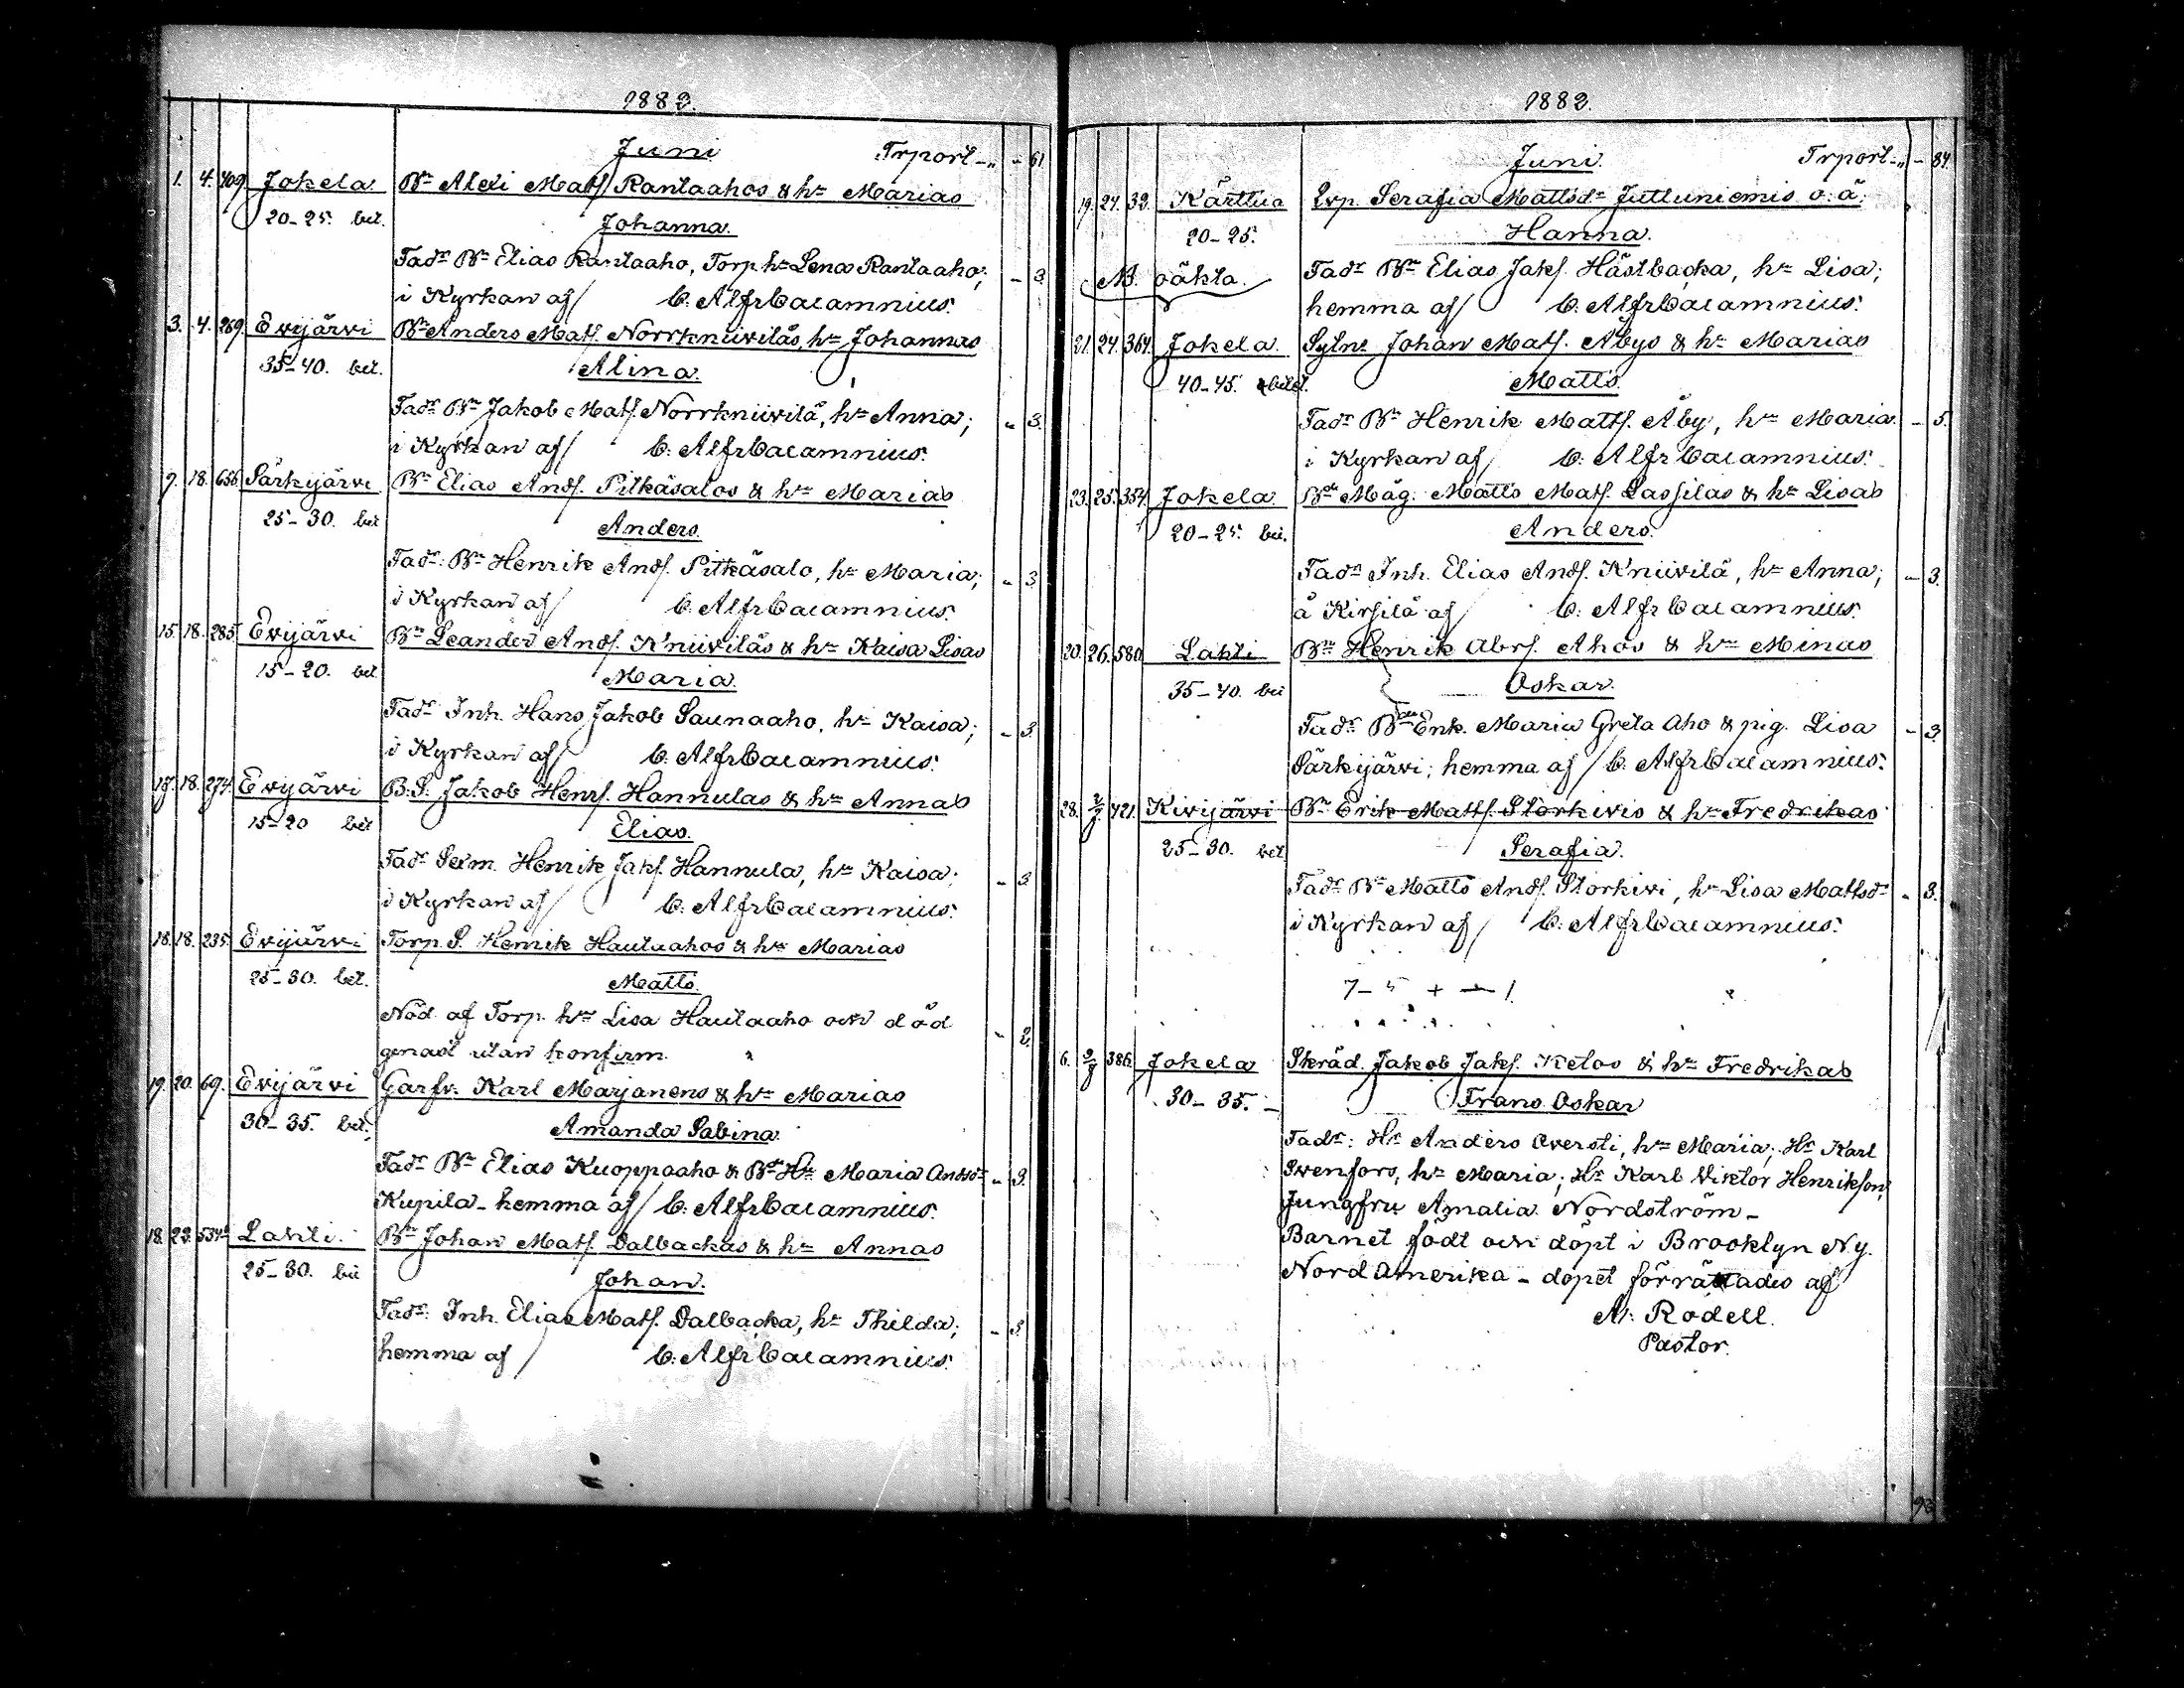 1882.
Juni Trport -„ - 61
1. 4. 409. Jokela Bn Alexi Mats Rantaahos & hu Marias
20-25. bet. Johanna.
Fadr Bn Elias Rantaaho, Torp. hu Lena Rantaaho; - 3.
i Kyrkan af/ C. Alfr Calamnius.
3. 4. 269. Evijärvi Bn Anders Mats. Norrkniiviläs, hu Johannas
35-40. bet. Alina.
Fadr Bn Jakob Mats. Norrkniivilä, hu Anna; - 3.
i Kyrkan af/ C. Alfr Calamnius.
9. 18. 656. Särkijärvi Bn Elias Ands. Pitkäsalos & hu Marias
25-30. bet Anders.
Fadr: Bn Henrik Ands. Pitkäsalo, hu Maria; - 3
i Kyrkan af/ C. Alfr Calamnius.
15. 18. 285. Evijärvi Bn Leander Ands. Kniiviläs & hu Kaisa Lisas
15-20. bet. Maria.
Fadr Inh. Hans Jakob Saunaaho, hu Kaisa; - 3.
i Kyrkan af/ C. Alfr Calamnius.
17. 18. 274. Evijärvi B.S. Jakob Henrs. Hannulas & hu Annas
15-20 bet Elias.
Fadr Sexm. Henrik Jaks. Hannula, hu Kaisa; - 3
i Kyrkan af/ C. Alfr Calamnius.
18. 18. 235. Evijärvi Torp. S. Henrik Hautaahos & hu Marias
25-30. bet. Matts.
Nöd. af Torp. hu Lisa Hautaaho och död - 2.
genast utan konfirm.
19. 20. 69. Evijärvi Garfv. Karl Marjanens & hu Marias
30-35. bet; Amanda Sabina.
Fadr Bn Elias Kuoppaaho & Bn Hu Maria Andsdr - 3.
Kupila - hemma af/ C. Alfr Calamnius.
18. 23. 534. Lahti. Bn Johan Mats. Dalbackas & hu Annas
25-30. bet Johan.
Fadr: Inh. Elias Mats. Dalbacka, hu Thilda; - 3.
hemma af/ C. Alfr Calamnius.
1882.
Juni. Trport -„ - 84.
19. 24. 32. Kärttua Serafia Mattsdr Jutluniemis o. ä.
20-25. Hanna.
NB. oäkta. Fadr Bn Elias Jaks. Hästbacka, hu Lisa;
hemma af/ C. Alfr Calamnius.
21. 24. 364. Jokela. Sytne Johan Mats. Åbys & hu Marias
40-45. Matts.
Fadr Bn Henrik Matts. Åby, hu Maria - 5.
i Kyrkan af/ C. Alfr Calamnius.
23. 25. 354. Jokela Måg. Matts Mats. Lassilas & hu Lisas
20-25. bet. Anders.
Fadr Inh. Elias Ands. Kniivilä, hu Anna; - 3.
å Kirsilä af/ C. Alfr Calamnius.
20. 26. 580 Lahti Bn Henrik Abrs. Ahos & hu Minas
35-40. bet Oskar.
Fadr Enk. Maria Greta Aho & pig. Lisa - 3.
Särkijärvi; hemma af/ C. Alfr Calamnius.
28. 2/7 421. Kivijärvi Bn Erik Matts. Storkivis & hu Fredrikas
25-30. bet Serafia.
Fadr Bn Matts Ands. Storkivi, hu Lisa Mattsdr - 3.
i Kyrkan af/ C. Alfr Calamnius.
7- 5 + - 1.
6. 386. Jokela Skräd. Jakob Jaks. Ketos & hu Fredrikas
30-35. - Frans Oskar
Fadr: Hr Anders Oversti, hu Maria; Hr Karl
Svenfors, hu Maria; Hr Karl Viktor Henrikson,
Jungfru Amalia Nordström -
Barnet födt och döpt i Brooklyn N.y.
Nord Amerika - dopet förrättades af
M. Rodell.
Pastor.
93